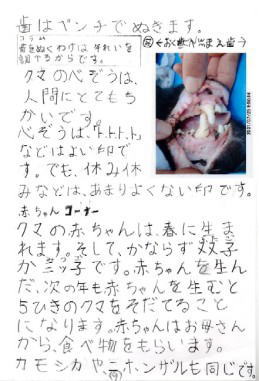 歯はペンチでぬきます。
コラム
歯をぬくわけは、それいを
調べるからです。
クマの心ぞうは、
人間にとてもち
かいです。
心ぞうは、トトトト、
などはよい印で
す。でも、休み休
みなどは、あまりよくない印です。
赤ちゃんコーナー
クマの赤ちゃんは、春に生ま
れます。そして、かならず双子
か三ッ子です。赤ちゃんを生ん
だ、次の年も赤ちゃんを生むと
5ひきのクマをそだてること
になります。赤ちゃんはお母さん
から、食べ物をもらいます。
カモシカや、ニホンザルも同じです。